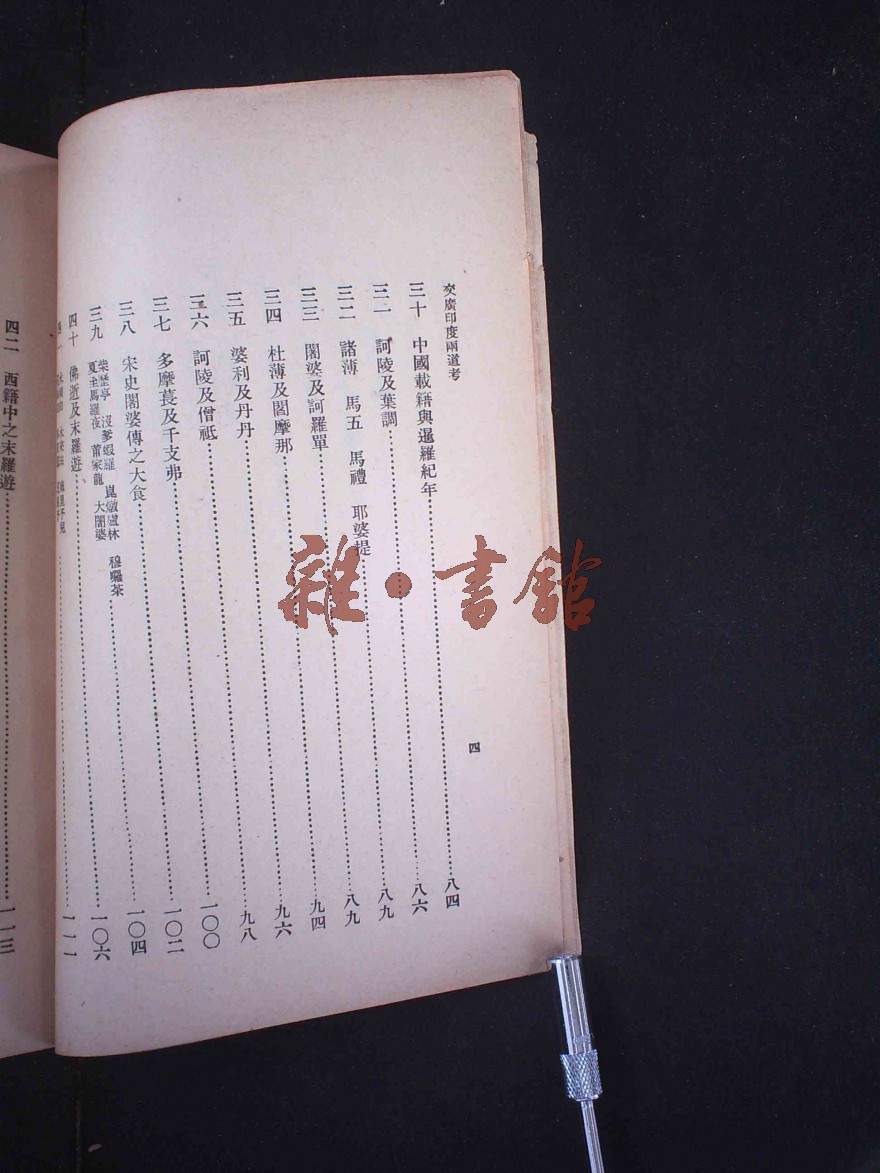 交廣印度兩道考
四
三十　中國載籍與暹羅紀年……八四
三一　訶陵及葉調……八六
三二　諸薄　馬五　馬禮　耶婆提……八九
三三　闍婆及訶羅單……八九
三四　杜薄及閻摩那……九四
三五　婆利及丹丹……九六
三六　訶陵及僧祗……九八
三七　多摩萇及千支弗……一〇〇
三八　宋史闍婆傳之大食……一〇二
三九　柴歷亭　沒爹蝦羅　崑燉盧林
馬羅夜　莆家龍　大闍婆……一〇四
四十　佛逝及末羅遊……一〇六
一一一
四二　西籍中之末羅遊……一一三
雜・書館